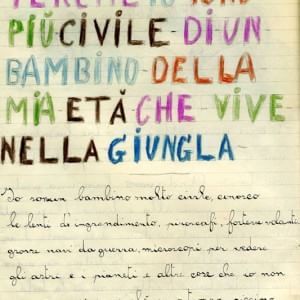 PERCHE IO SONO
PIÙ CIVILE DI UN
BAMBINO DELLA
MIA ETÀ CHE VIVE
NELLA GIUNGLA
Io son un bambino molto civile, conosco
le lenti di ingrandimento, piroscafi, forteze volanti,
grosse navi da guerra, microscopi per vedere
gli astri e i pianeti e altre cose che io non